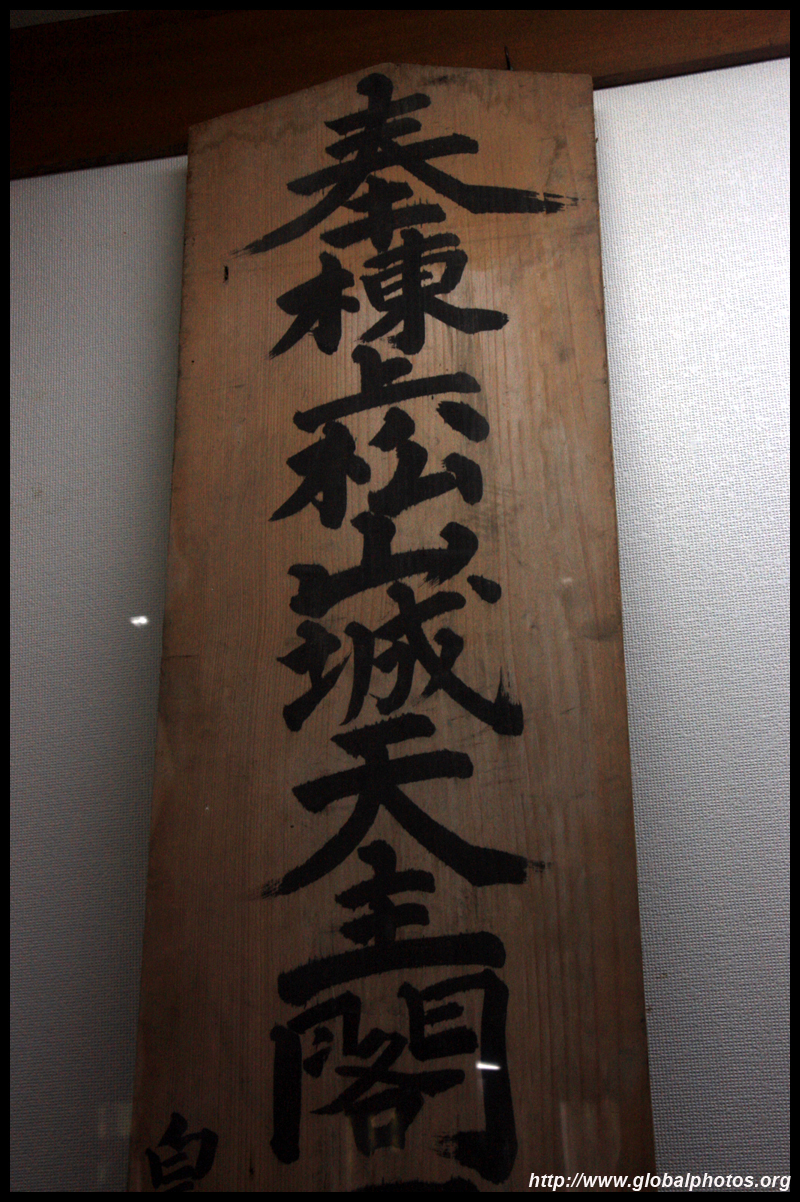 奉棟上松山城天主閣
http://www.globalphotos.org